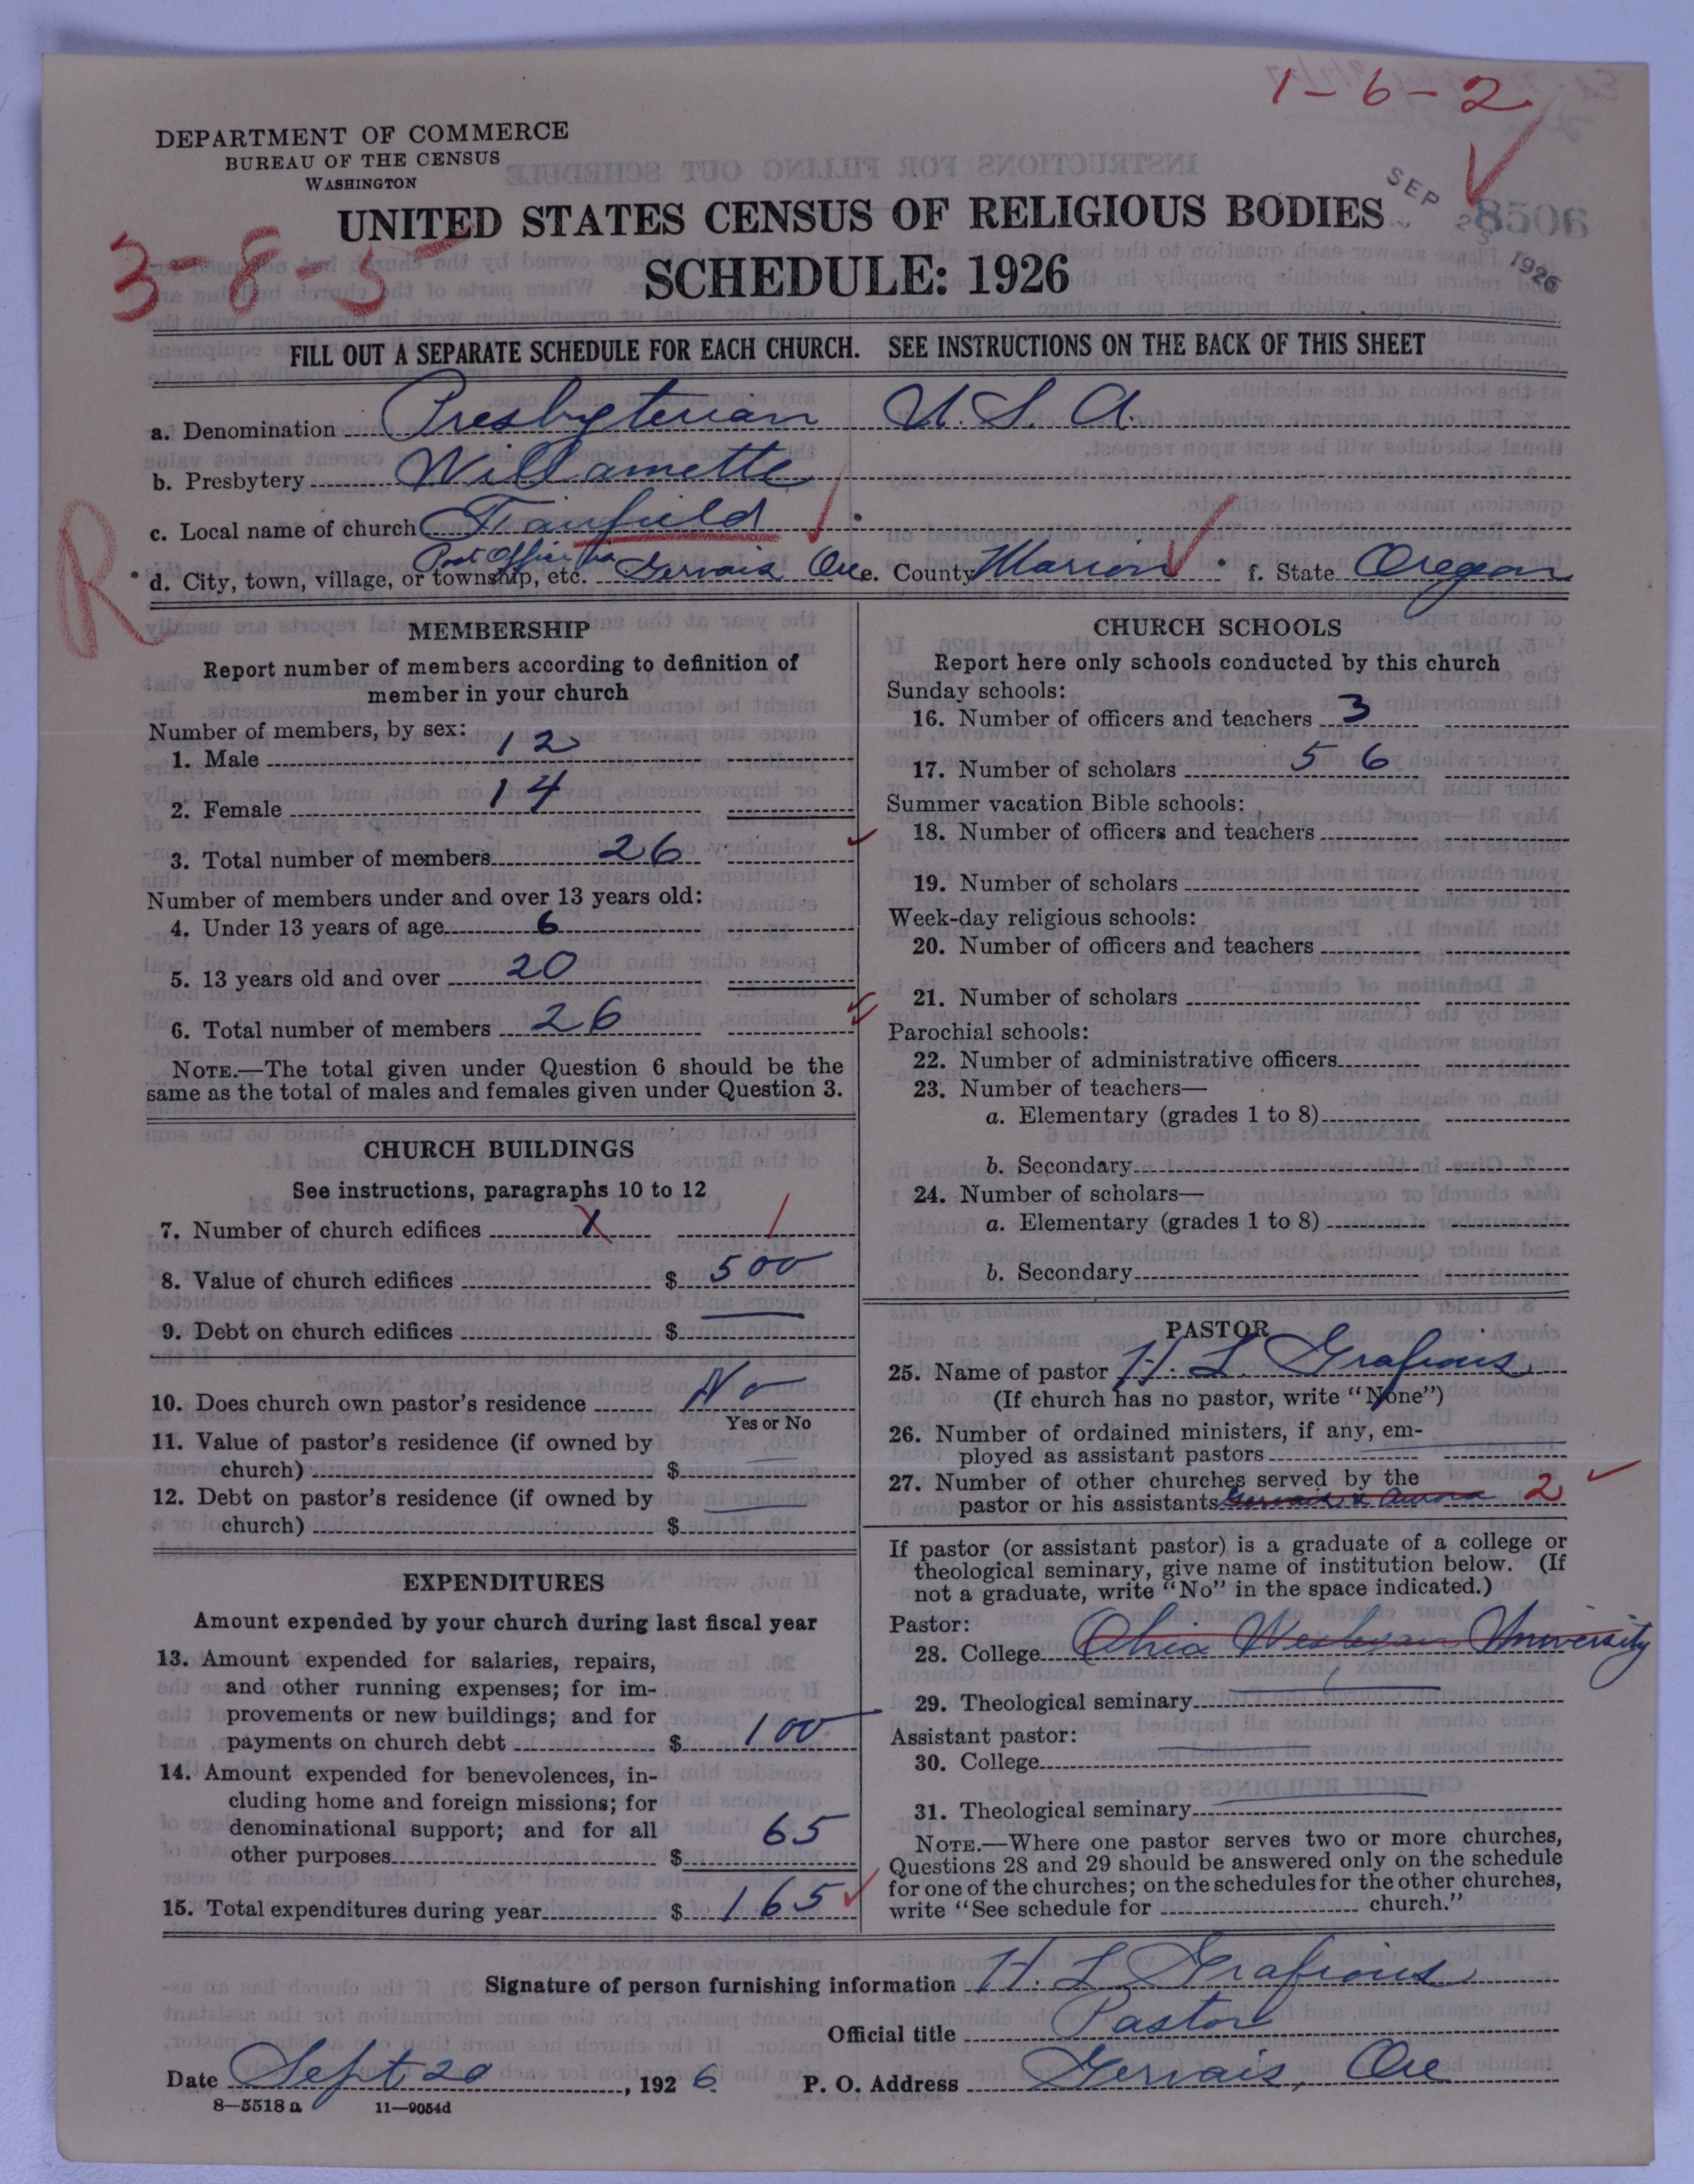 1-6-2
DEPARTMENT OF COMMERCE
BUREAU OF THE CENSUS
WASHINGTON
UNITED STATES CENSUS OF RELIGIOUS BODIES
SCHEDULE: 1926
3-8-5
SEP 25 1926
8506
FILL OUT A SEPARATE SCHEDULE FOR EACH CHURCH. SEE INSTRUCTIONS ON THE BACK OF THIS SHEET
a. Denomination Presbyterian U. S. A.
b. Presbytery Willamette
c. Local name of church Fairfield
R
d. City, town, village, or township, etc. Post Office Gervais Ore e. County Marion f. State Oregon
MEMBERSHIP
Report number of members according to definition of
member in your church
Number of members, by sex:
1. Male 12
2. Female 14
3. Total number of members 26
Number of members under and over 13 years old:
4. Under 13 years of age 6
5. 13 years old and over 20
6. Total number of members 26
NOTE.—The total given under Question 6 should be the
same as the total of males and females given under Question 3.
CHURCH BUILDINGS
See instructions, paragraphs 10 to 12
7. Number of church edifices 1 1
8. Value of church edifices $ 500
9. Debt on church edifices $
10. Does church own pastor's residence No
Yes or No
11. Value of pastor's residence (if owned by
church) $
12. Debt on pastor's residence (if owned by
church) $
EXPENDITURES
Amount expended by your church during last fiscal year
13. Amount expended for salaries, repairs,
and other running expenses; for im-
provements or new buildings; and for
payments on church debt $ 100
14. Amount expended for benevolences, in-
cluding home and foreign missions; for
denominational support; and for all
other purposes $ 65
15. Total expenditures during year $ 165
CHURCH SCHOOLS
Report here only schools conducted by this church
Sunday schools:
16. Number of officers and teachers 3
17. Number of scholars 56
Summer vacation Bible schools:
18. Number of officers and teachers
19. Number of scholars
Week-day religious schools:
20. Number of officers and teachers
21. Number of scholars
Parochial schools:
22. Number of administrative officers
23. Number of teachers—
a. Elementary (grades 1 to 8)
b. Secondary
24. Number of scholars—
a. Elementary (grades 1 to 8)
b. Secondary
PASTOR
25. Name of pastor H. L. Grafious
(If church has no pastor, write "None")
26. Number of ordained ministers, if any, em-
ployed as assistant pastors
27. Number of other churches served by the
pastor or his assistants Gervais & Aurora 2
If pastor (or assistant pastor) is a graduate of a college or
theological seminary, give name of institution below. (If
not a graduate, write "No" in the space indicated.)
Pastor:
28. College Ohio Wesleyan University
29. Theological seminary
Assistant pastor:
30. College
31. Theological seminary
NOTE.—Where one pastor serves two or more churches,
Questions 28 and 29 should be answered only on the schedule
for one of the churches; on the schedules for the other churches,
write "See schedule for church."
Signature of person furnishing information H. L Grafious
Official title Pastor
Date Sept 20, 1926 P. O. Address Gervais, Ore
8-5518 a 11-9054d